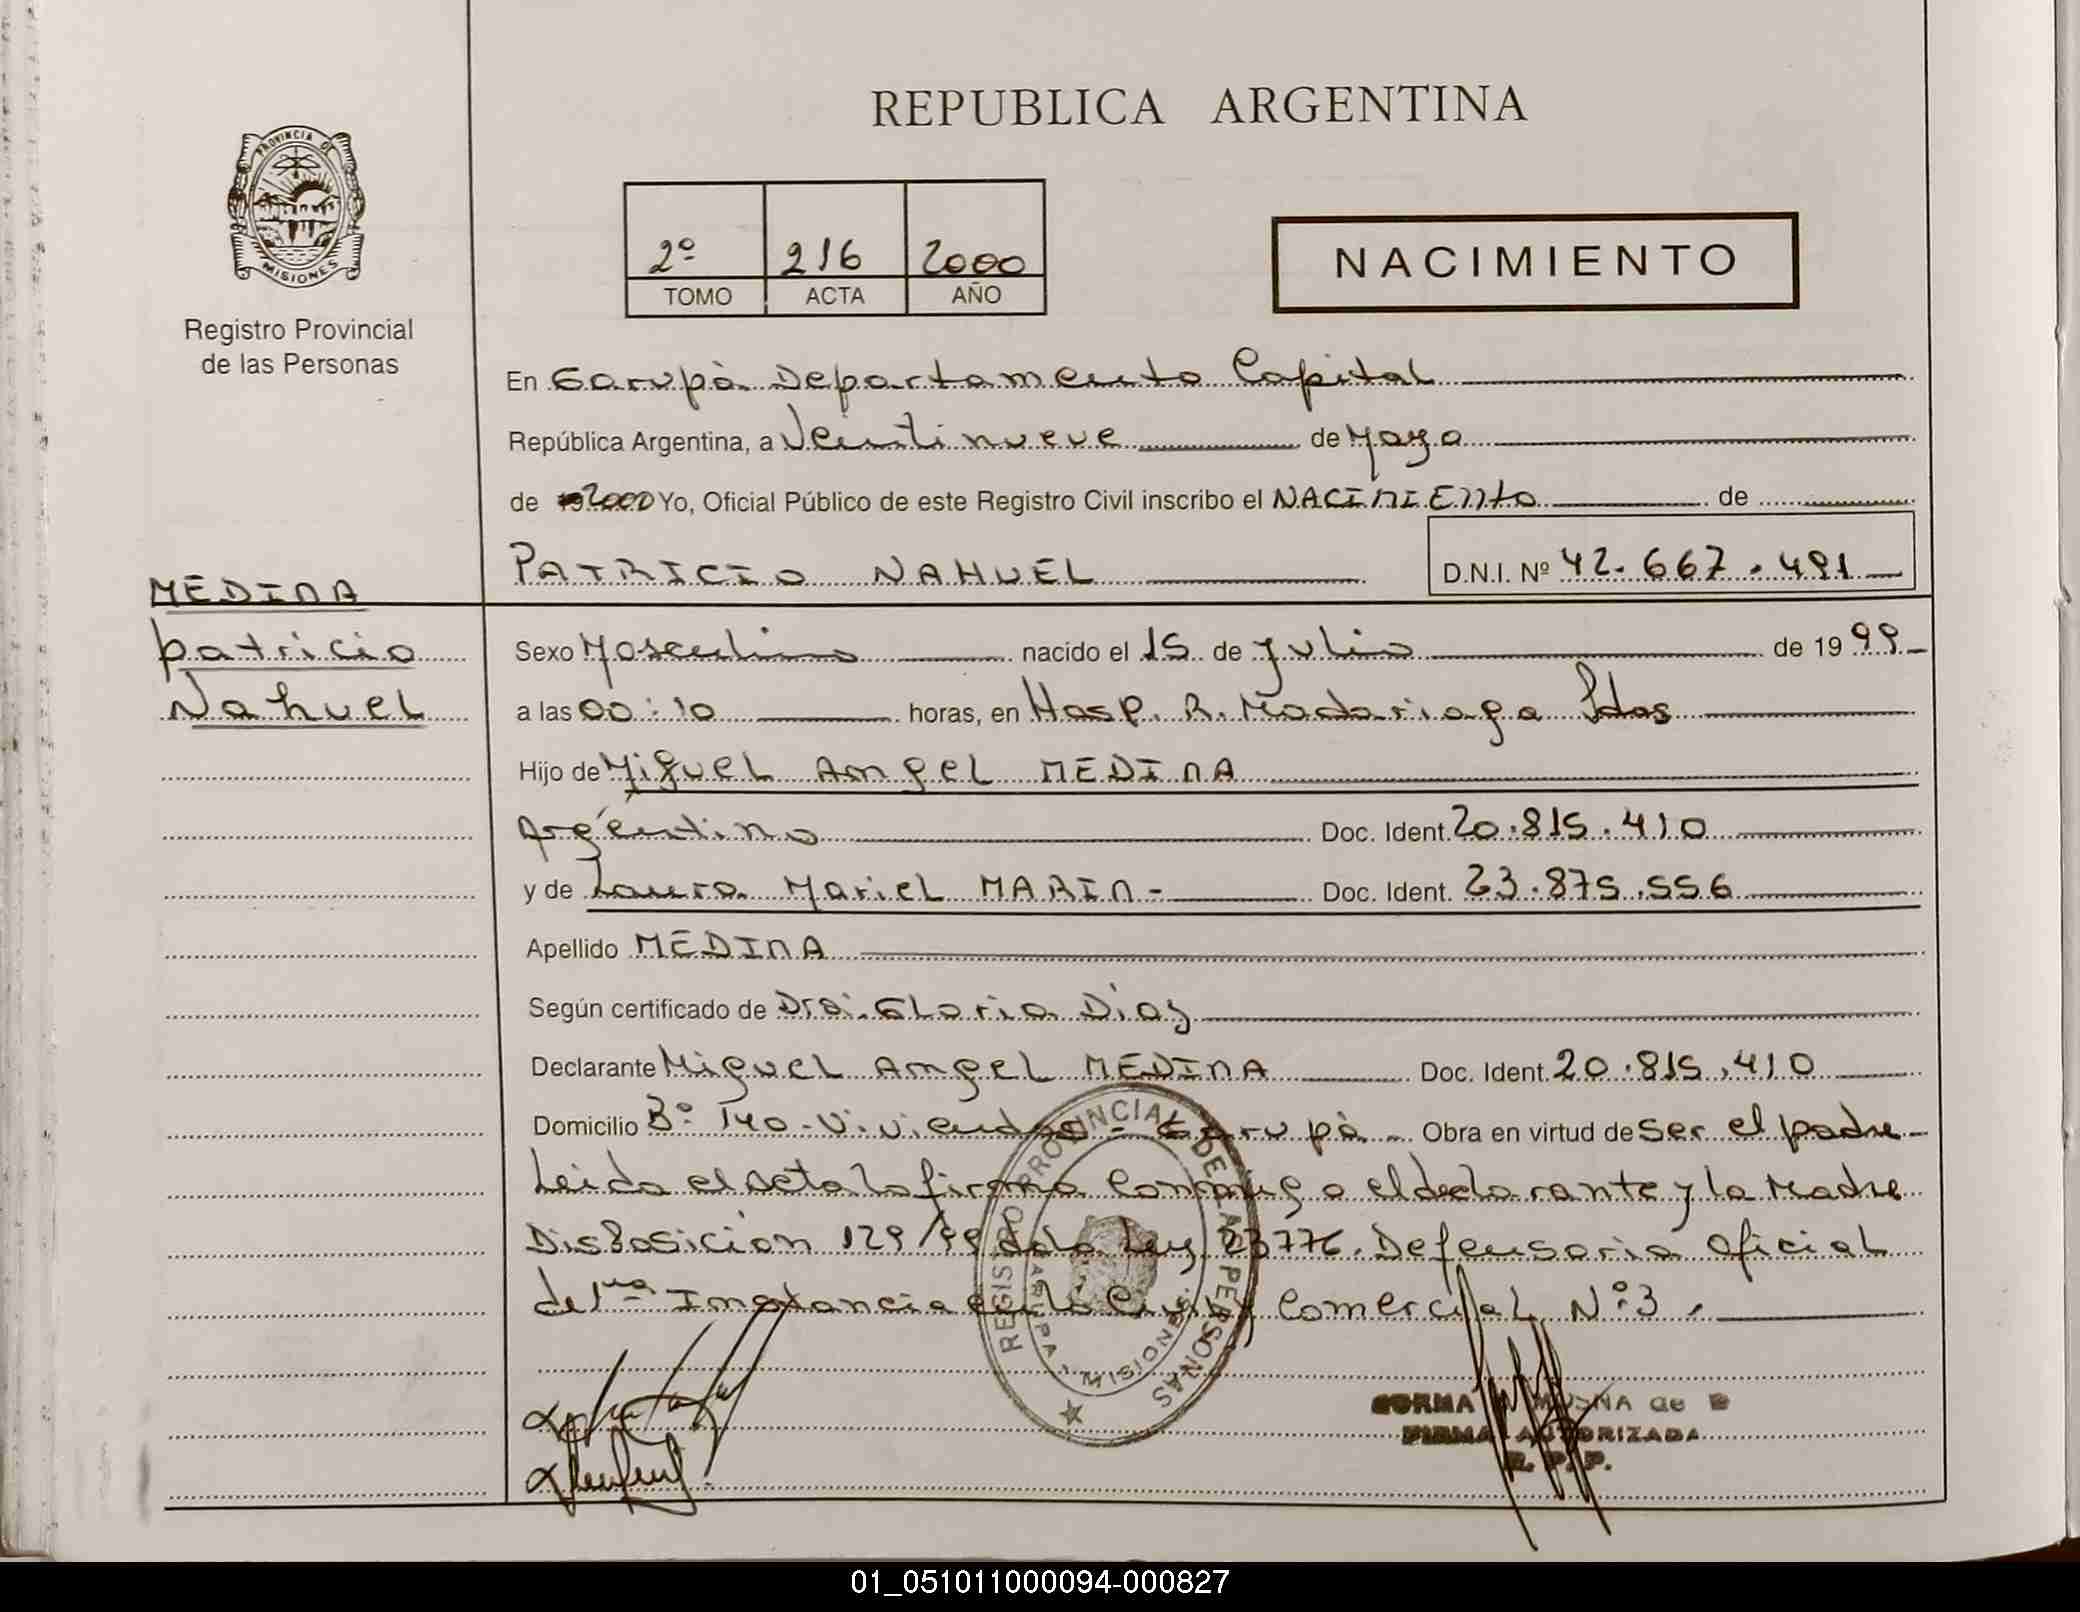 REPUBLICA ARGENTINA
PROVINCIA DE
MISIONES
Registro Provincial
de las Personas
2º 216 2000
TOMO ACTA AÑO
NACIMIENTO
En Garupà Departamento Capital
República Argentina, a Veintinueve de Mayo
de 2000 Yo, Oficial Público de este Registro Civil inscribo el NACIMIENTO de
PATRICIO NAHUEL D.N.I. Nº 42.667.491
MEDINA
Patricio
Nahuel
Sexo Masculino nacido el 15 de Julio de 1999
a las 00:10 horas, en Hosp. R. Madariaga Pdas
Hijo de Miguel Angel MEDINA
Argentino Doc. Ident. 20.815.410
y de Laura Mariel MARIN - Doc. Ident. 23.875.556
Apellido MEDINA
Según certificado de Dra. Gloria Díaz
Declarante Miguel Angel MEDINA Doc. Ident. 20.815.410
Domicilio Bº 140 - Viviendas - Garupà Obra en virtud de ser el padre
Leida el Acta la firma conmigo el declarante y la Madre
Disposición 129/99 de la Ley 23776. Defensoria Oficial
de 1ra Instancia en lo Civil y Comercial Nº 3.
REGISTRO PROVINCIAL DE LAS PERSONAS
GARUPA MISIONES
NORMA MUSNA de
FIRMA AUTORIZADA
R. P. P.
01_051011000094-000827